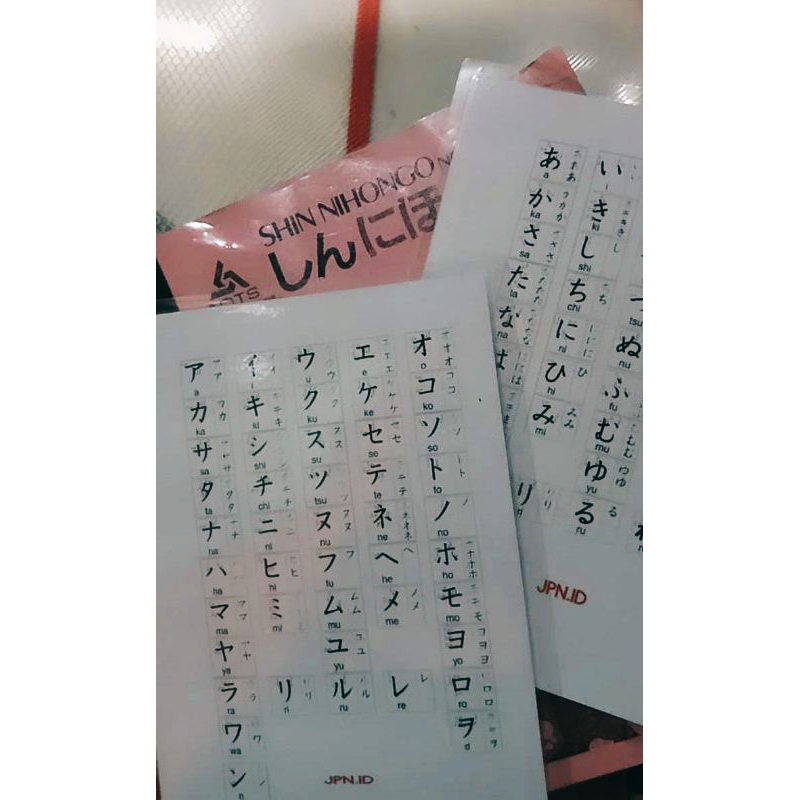 SHIN NIHONGO
しんにほ
ア イ ウ エ オ
a u e o
カ キ ク ケ コ
ka ki ku ke ko
サ シ ス セ ソ
sa shi su se so
タ チ ツ テ ト
ta chi tsu te to
ナ ニ ヌ ネ ノ
na ni nu ne no
ハ ヒ フ ヘ ホ
ha hi fu he ho
マ ミ ム メ モ
ma mi mu me mo
ヤ ユ ヨ
ya yu yo
ラ リ ル レ ロ
ra ri ru re ro
ワ ヲ
wa o
ン
n
JPN.ID
あ い
a i
か き
ka ki
さ し
sa shi
た ち
ta chi tsu
な に ぬ
na ni nu
は ひ ふ
hi fu
み む
mi mu
ゆ
yu
り る
ri ru
JPN.ID